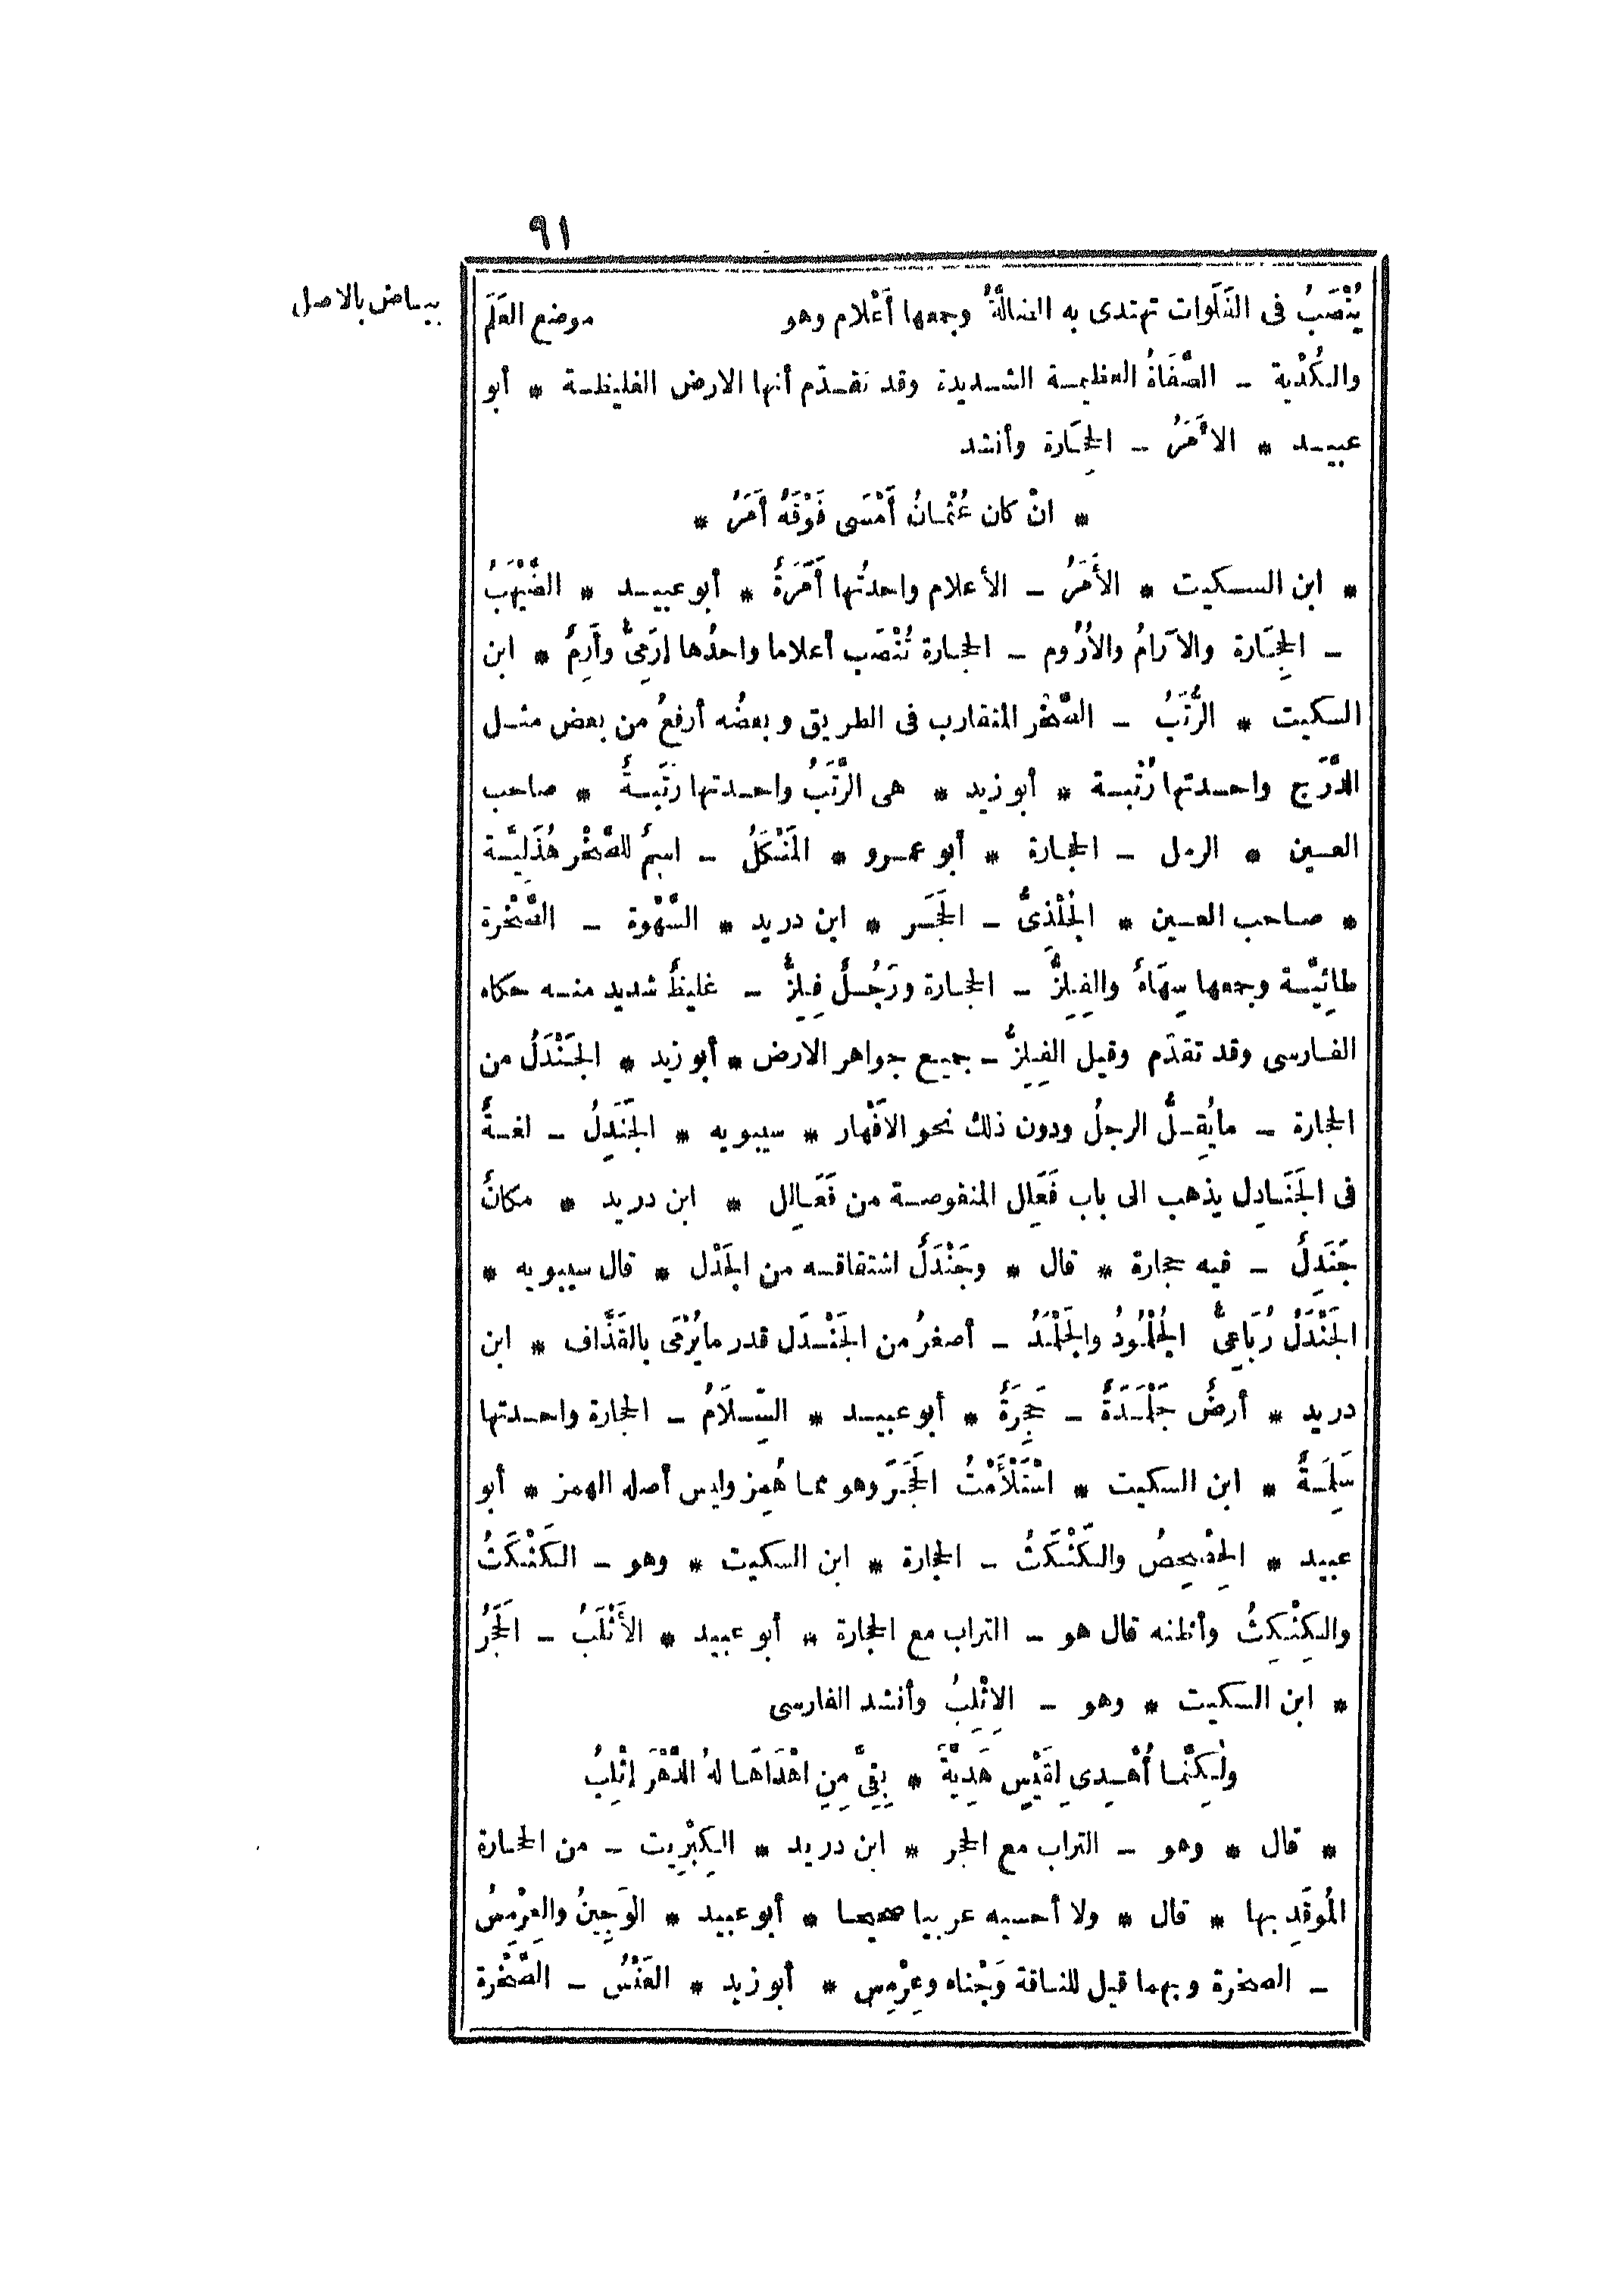 ٩١
يُنْصَبُ فى الفَلَوات تهتدى به الضالَّةُ وجمعها أَعْلام وهو موضع العَلَم
بياض بالاصل
والكُدْية ـ الصَّفَاةُ العظيمة الشديدة وقد تقدّم أنها الارض الغليظة * أبو
عبيد * الاَمَرُ ـ الحِجَارة وأنشد
* انْ كان عُثْمانُ أَمْسَى فَوْقَهُ أَمَرُ *
* ابن السكيت * الأَمَرُ ـ الأعلام واحدتُها أَمَرَةٌ * أبو عبيد * الضَّيْهَبُ
ـ الحِجَارة والآرَامُ والاُرُوم ـ الحجارة تُنْصَب أعلاما واحدُها إرَمِىٌّ وأَرِمٌ * ابن
السكيت * الرُّتَبُ ـ الصَّخْر المتقارب فى الطريق وبعضُه أرفعُ من بعض مثل
الدَّرَج واحدتها رُتْبة * أبو زيد * هى الرَّتَبُ واحدتها رَتَبةٌ * صاحب
العين * الرمل ـ الحجارة * أبو عمرو * المَنْكَلُ ـ اسمٌ للصَّخْر هُذَلِيَّة
* صاحب العين * الجُلْذِىُّ ـ الحَجَر * ابن دريد * السَّهْوة ـ الصَّخْرة
طائِيَّة وجمعها سِهَاءٌ والفِلِزُّ ـ الحجارة ورَجُلٌ فِلِزٌّ ـ غليظٌ شديد منه حكاه
الفارسى وقد تقدّم وقيل الفِلِزُّ ـ جميع جواهر الارض * أبو زيد * الجَنْدَلُ من
الحجارة ـ مايُقِلُّ الرجلُ ودون ذلك نحو الاَفْهار * سيبويه * الجَنَدِلُ ـ لغةٌ
فى الجَنَادِل يذهب الى باب فَعَلِل المنقوصة من فَعَالِل * ابن دريد * مكانٌ
جَنَدِلٌ ـ فيه حجارة * قال * وجَنْدَلٌ اشتقاقه من الجَدْل * قال سيبويه *
الجَنْدَلُ رُبَاعِىٌّ الجُلْمُودُ والجَلْمَدُ ـ أصغرُ من الجَنْدَل قدر مايُرْمَى بالقَذَّاف * ابن
دريد * أرضٌ جَلْمَدَةٌ ـ حَجِرَةٌ * أبو عبيد * السِّلَامُ ـ الحجارة واحدتها
سَلِمَةٌ * ابن السكيت * اسْتَلْأَمْتُ الحَجَرَ وهو مما هُمِز وليس أصله الهمز * أبو
عبيد * الحِصْحِصُ والكَثْكَثُ ـ الحجارة * ابن السكيت * وهو ـ الكَثْكَثُ
والكِثْكِثُ وأظنه قال هو ـ التراب مع الحجارة * أبو عبيد * الأَثْلَبُ ـ الحَجَرُ
* ابن السكيت * وهو ـ الاِثْلِبُ وأنشد الفارسى
ولٰكِنَّما أُهْدِى لِقَيْسٍ هَدِيَّةً * بِفِىَّ مِنِ اهْدَاهَا لهُ الدَّهْرَ إثْلِبُ
* قال * وهو ـ التراب مع الحجر * ابن دريد * الكِبْرِيت ـ من الحجارة
المُوقَدِ بها * قال * ولا أحسبه عربيا صحيحا * أبو عبيد * الوَجِينُ والعِرْمِسُ
ـ الصخرة وبهما قيل للناقة وَجْناء وعِرْمِس * أبو زيد * العَنْسُ ـ الصَّخْرة